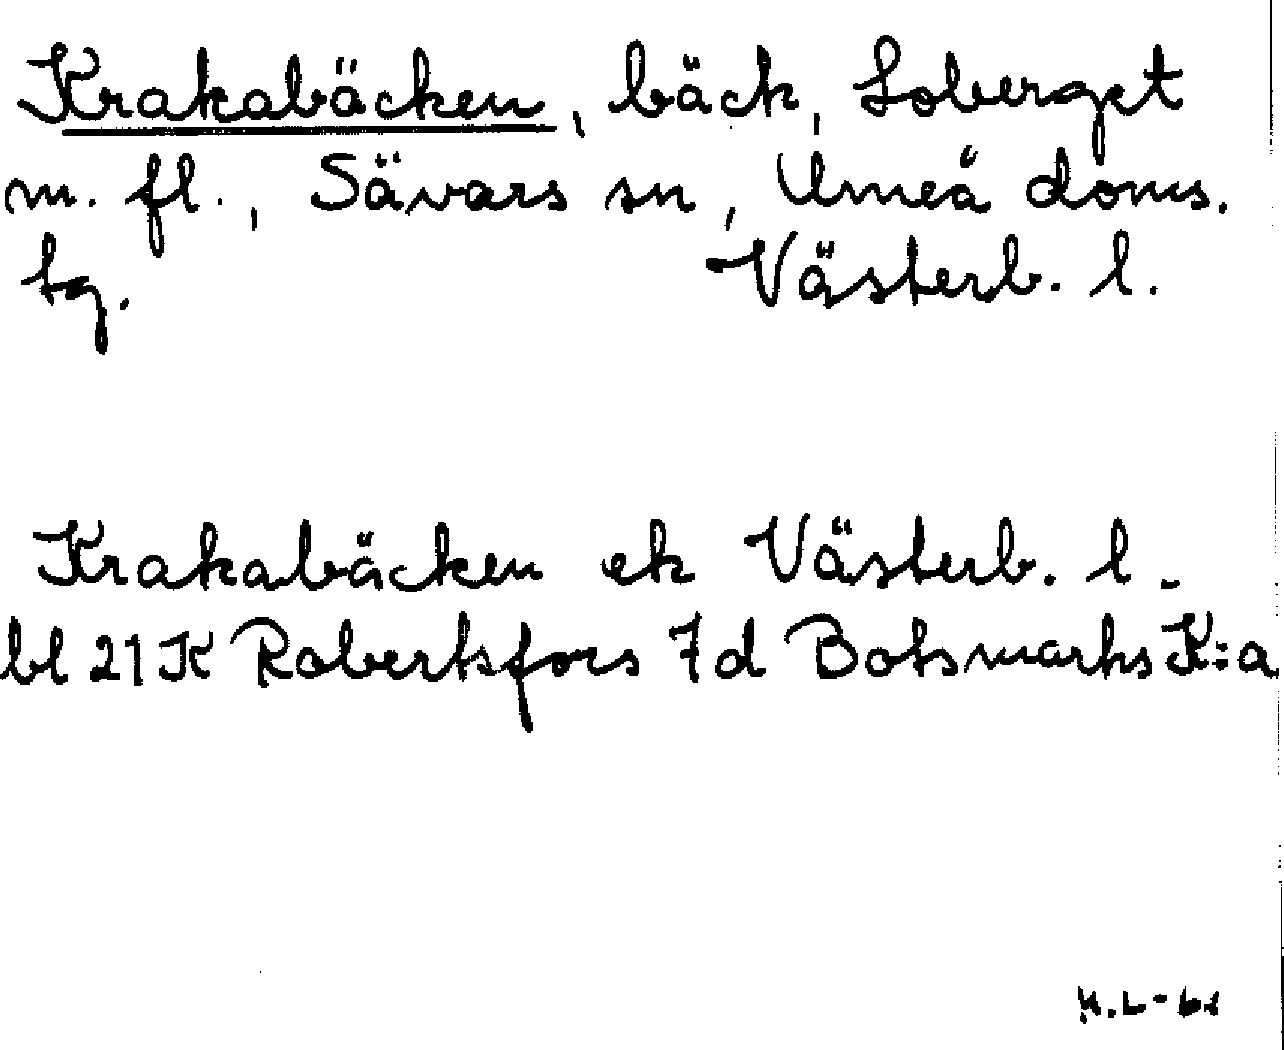 Krakabäcken, bäck, Loberget
m. fl., Sävars sn, Umeå doms.
tg. Västerb. l.
Krakabäcken ek Västerb. l.
bl 21 K Robertsfors 7d Botsmarks K:a